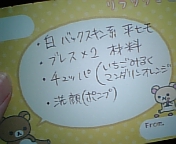 ・白 バックスキン系 平ヒモ
・ブレス×2 材料
・チュッパ(いちごみるく
マンダリンオレンジ
・洗顔(ポンプ)
From.